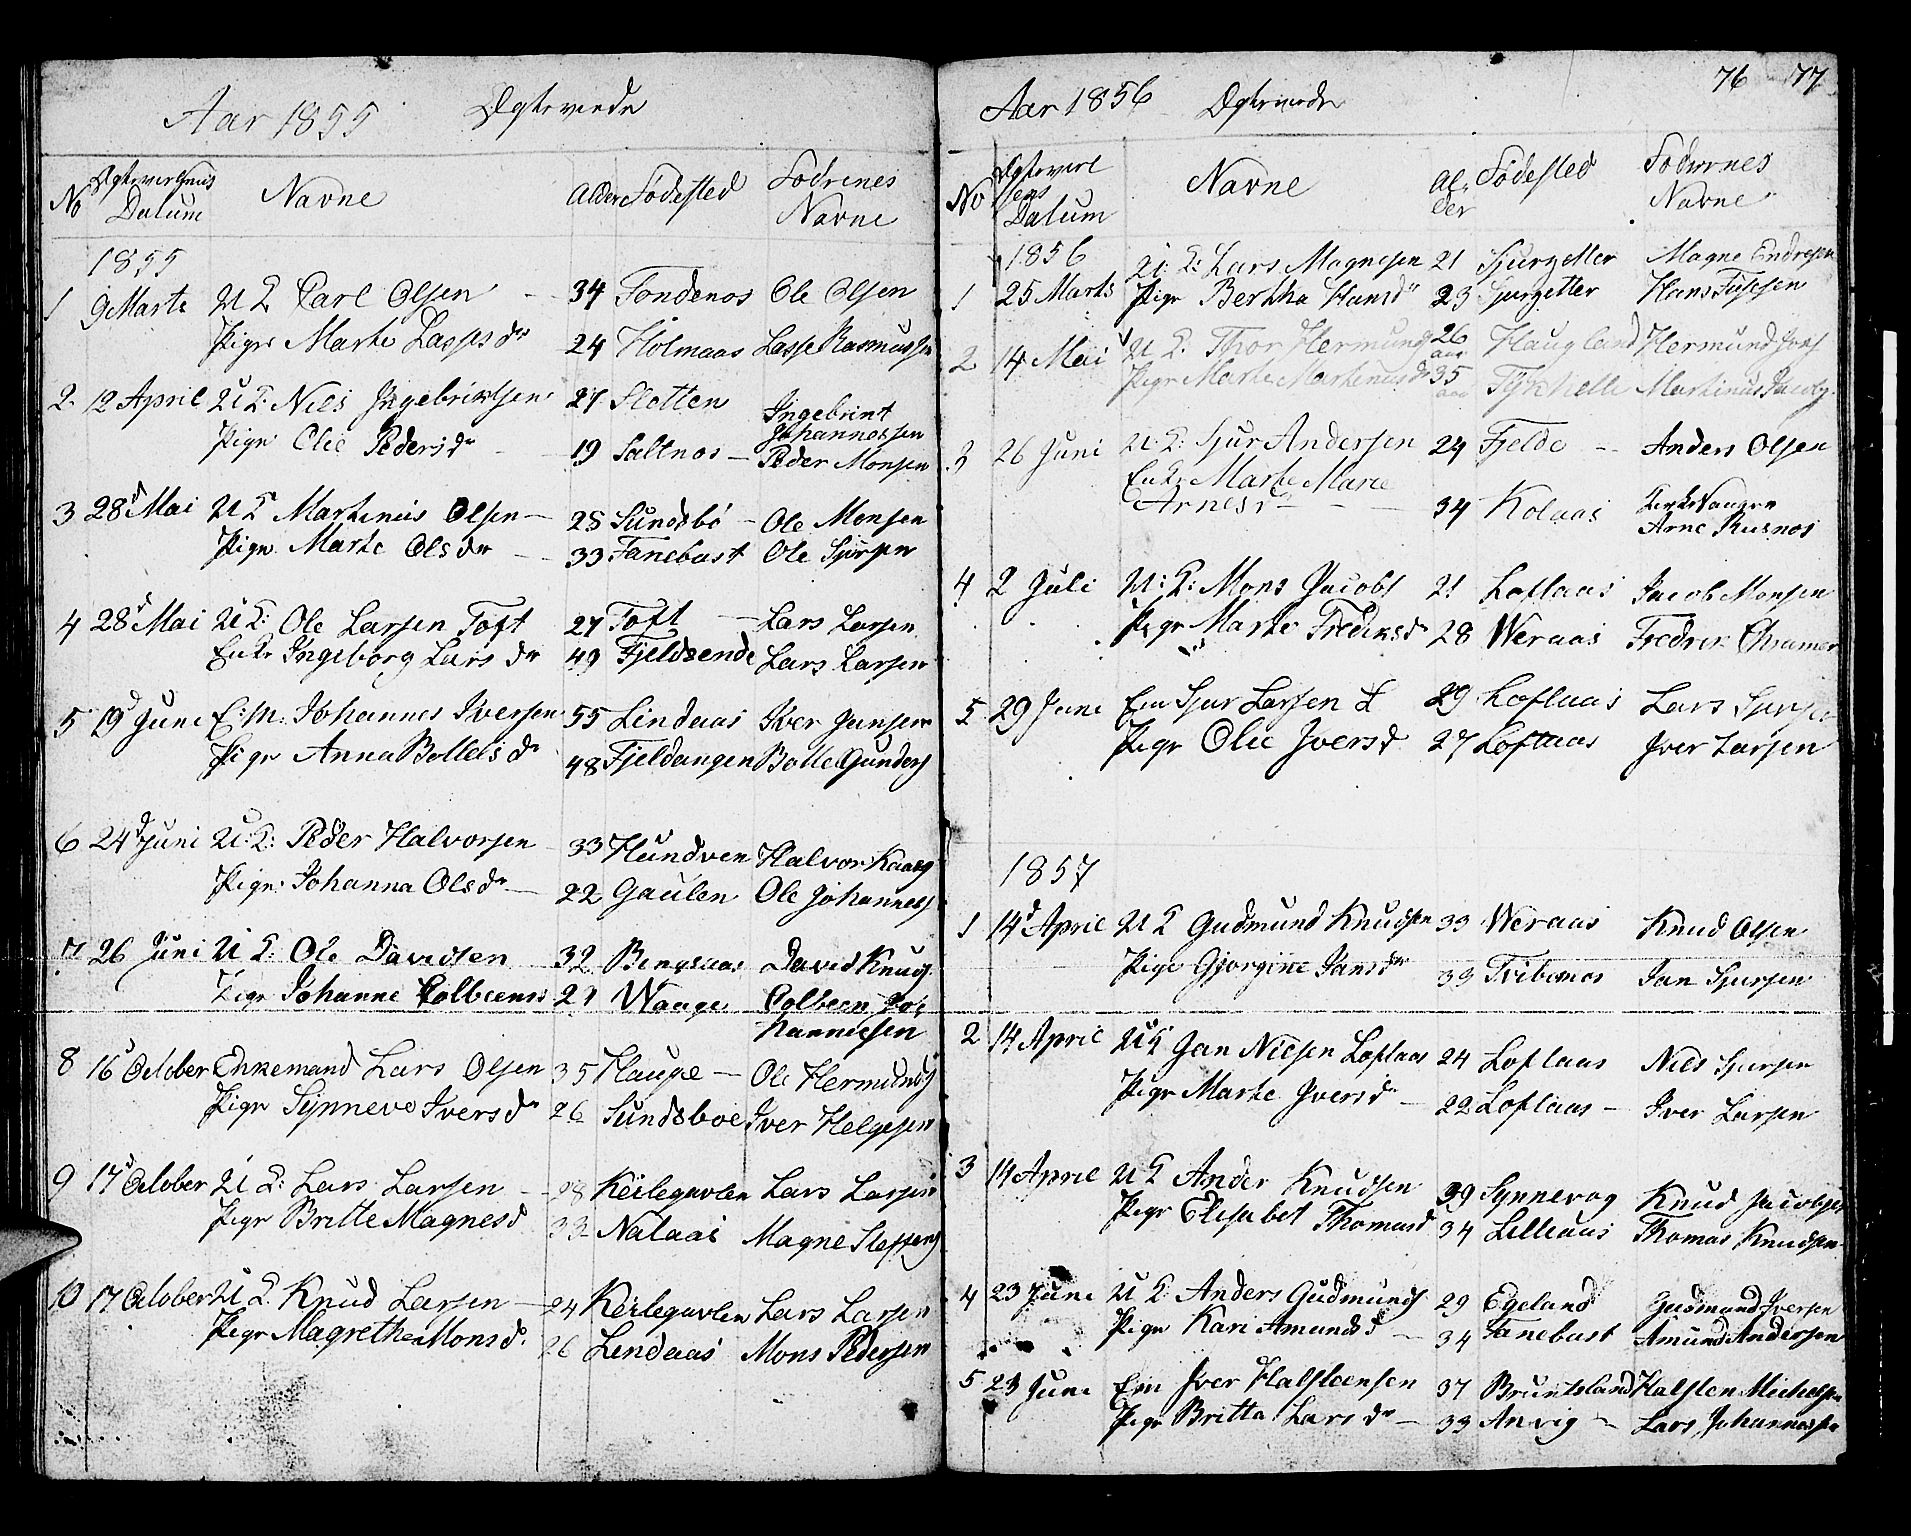 Aar 1855 Ægteviede
No Datum Navne Alder Födested Fedrenes
Navne
1855
1 9 Marts U K Carl Olsen 34 Tondenos Ole Olsen
Pige Marte Lassesdr 24 Holmaas Lasse Rasmussen
2 12 April U K: Nils Ingebrigtsen 27 Sletten Ingebrint
Johannessen
Pige Olie Pedersdr 19 Saltnos Peder Monsen
3 28d Mai U K Martinus Olsen 28 Sundsbö Ole Monsen
Pige Marte Olsdr 33 Fanebust Ole Sjursen
4 28d Mai U K: Ole Larsen Toft 27 Toft Lars Larsen
Enke Ingeborg Larsdr 49 Fjeldsende Lars Larsen
5 19d Juni E: M: Johannes Iversen 55 Lindaas Iver Jansen
Pige Anna Bottelsdr 48 Fjeldangen Botte Gunders
6 24d Juni U: K: Peder Halvorsen 33 Hundven Halvor
Pige: Johanna Olsdr 22 Gaulen Ole Johannes
7 26 Juni U K: Ole Davidsen 32 Bengsaas David Knuds
Pige Johanne Colbeens 21 Waage Colbeen Jo-
hannesen
8 16d October Enkemand Lars Olsen 35 Hauge Ole Hermunds
Pige Synneve Iversdr 26 Sundsboe Iver Helgesen
9 17d October U K: Lars Larsen 28 Keilegavlen Lars Larsen
Pige Britte Magnesd 33 Nataas Magne Steffens
10 17 October U K. Knud Larsen 24 Keilegavlen Lars Larsen
Pige Magrethe Monsd. 26 Lindaas Mons Pedersen
76 77
Aar 1856 Ægteviede
No Datum Navne Al-
der Födested Fedrenes
Navne
1856
1 25 Marts U: K: Lars Magnesen 21 Sjurgetter Magne Endresen
Pige Bertha Hansdr 23 Sjurgetter Hans
2 14 Mai U K. Thor Hermunds 26
aar Haugland Hermund Ivers
Pige Marte Martinusdr 35
aar Martinus Jacobs
3 26 Juni U. K: Sjur Andersen 24 Fjelde Anders Olsen
Enke Marte Marie
Arnesdr 34 Kolaas
Arne Risnos
4 2 Juli U: K: Mons Jacobs 21 Loftaas Jacob Monsen
Pige Marte Fredriksdr 28 Weraas Fredrik Chramer
5 29 Juni Em Sjur Larsen L 29 Loftaas Lars Sjursen
Pige Olie Iversd 27 Loftaas Iver Larsen
1857
1 14d April U K Gudmund Knudsen 33 Weraas Knud Olsen
Pige Gjorgine Jansdr 39 Jan Sjursen
2 14 April U K Jan Nilsen Loftaas 24 Loftaas Nils Sjursen
Pige Marte Iversdr 22 Loftaas Iver Larsen
3 14 April U K Ander Knudsen 39 Synnevog Knud Jacobsen
Pige Elisabet Thomasd 34 Lilleaas Thomas Knudsen
4 23 Juni U K Anders Gudmunds 29 Egeland Gudmund Iversen
Pige Kari Amundsd 34 Fanebust Amund Andersen
5 23 Juni Em Iver Halsteensen 37 Bruntsland Halsten Michelsen
Pige Britta Larsdr 33 Anvig Lars Johannessen